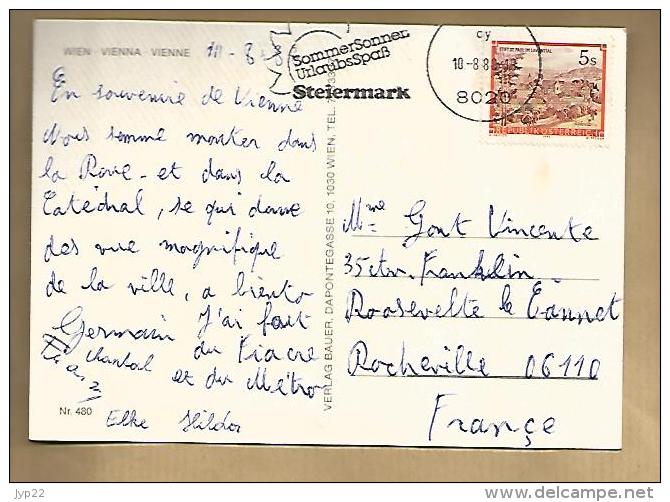 WIEN · VIENNA · VIENNE
10-8-8
En souvenire de Vienne
Nous somme monter dans
la Roue - et dans la
Catédral, se qui donne
des vue magnifique
de la ville, a biento
Germain J'ai fait
Chantal du Fiacre
et du Métro
Elke Hildor
Nr. 480
VERLAG BAUER, DAPONTEGASSE 10, 1030 WIEN, TEL.
SommerSonnen
UrlaubsSpaß
Steiermark
10-8.8
8020
STIFT ST. PAUL IM LAVANTTAL
5s
REPUBLIK ÖSTERREICH
Mme Gont Vincente
35 Franklin
Roosevelte le Cannet
Rocheville 06110
Françe
http://www.delcampe.net
jyp22